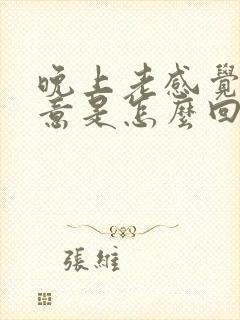 晚上老感覺
意是怎麼回
張維